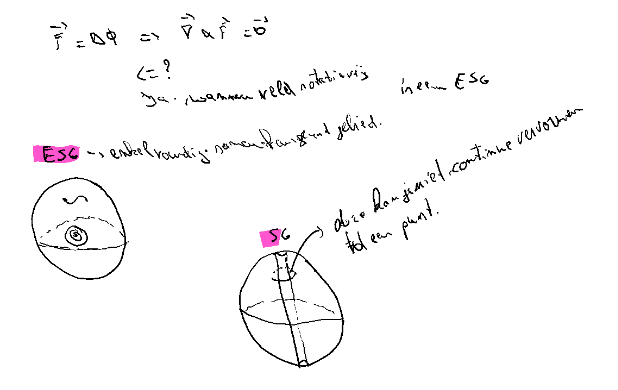 F⃗ = ΔΦ => ∇⃗ x F⃗ = 0⃗
<= ?
Ja, wanneer veld rotatievrij in een ESG
ESG -> enkelvoudig samenhangend gebied.
SG
deze kan je niet continue vervormen
tot een punt.